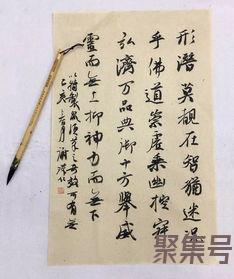 形潛莫覩在智猶迷況
乎佛道崇虛乘幽控寂
弘濟万品典御十方舉威
靈而無上抑神力而無下
聚集号